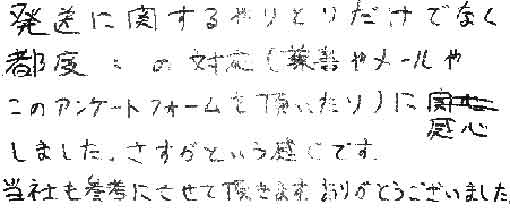 発送に関するやりとりだけでなく
都度 この対応(葉書やメールや
このアンケートフォームを頂いたり)に
感心
しました。さすがという感じです。
当社も参考にさせて頂きます。ありがとうございました。